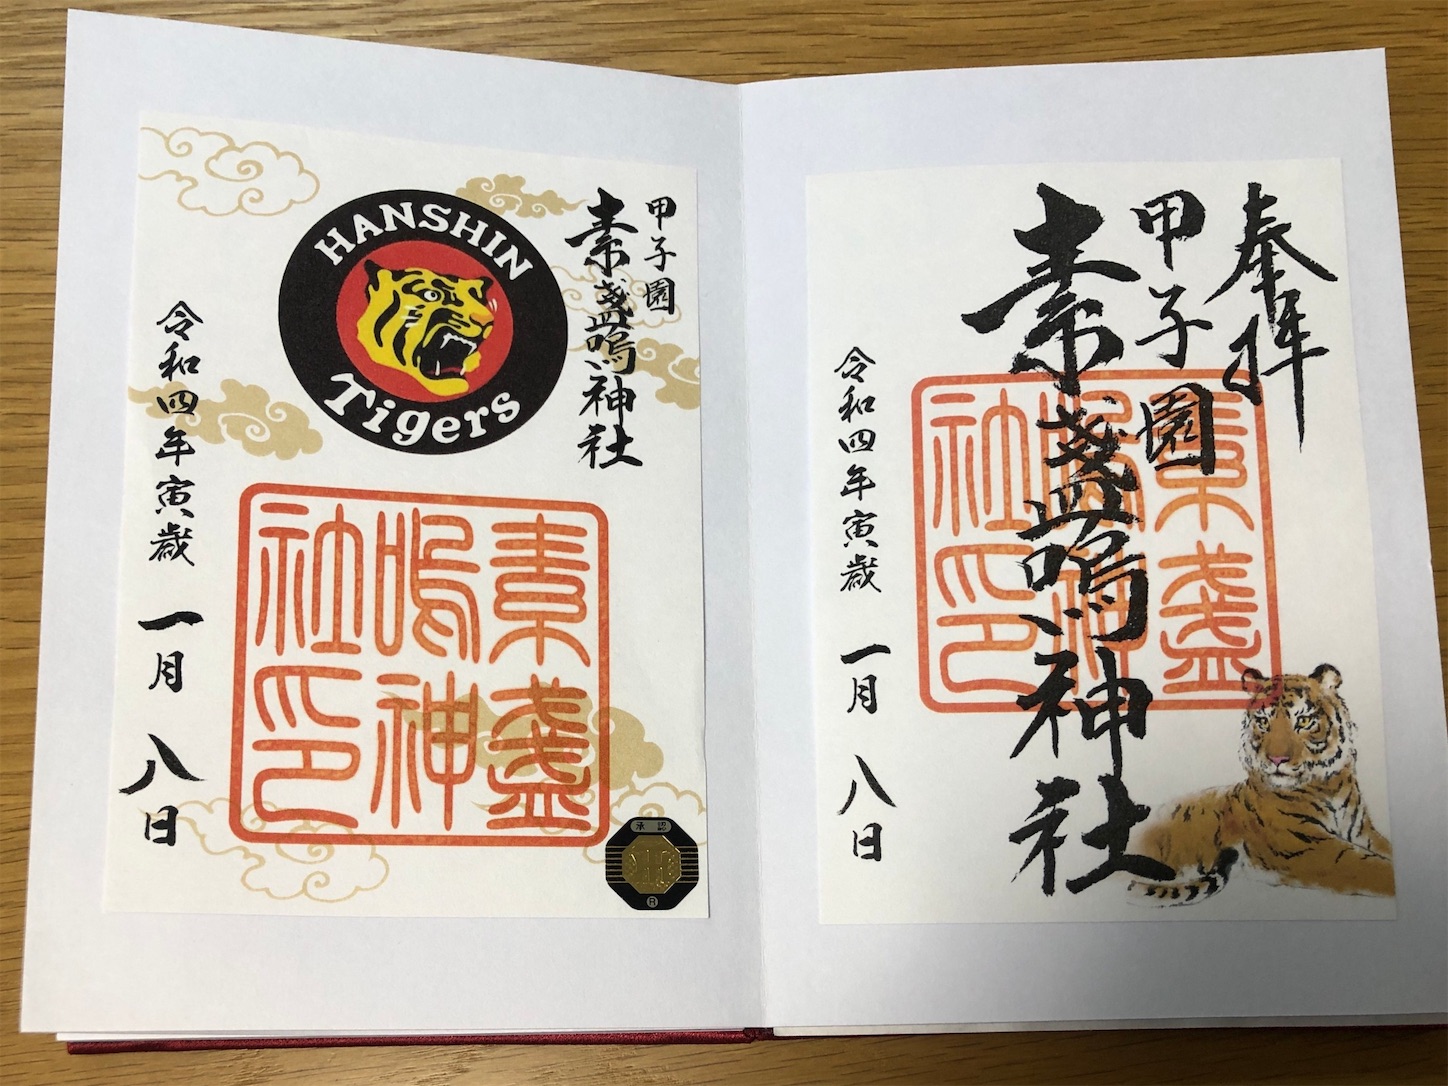 HANSHIN
Tigers
甲子園
素盞嗚神社
令和四年寅歳 一月 八日
素盞
嗚神
社印
承認
R
奉拝
甲子園
素盞嗚神社
令和四年寅歳 一月 八日
素盞
嗚神
社印